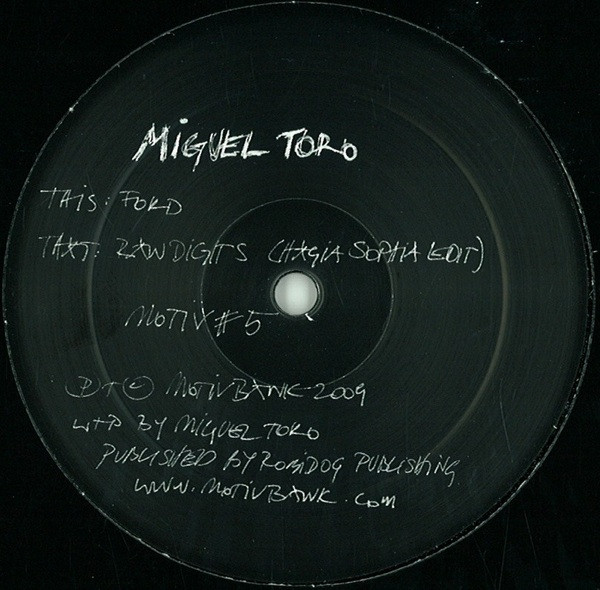 MIGUEL TORO
THIS: FORD
THAT: RAW DIGITS (HAGIA SOPHIA EDIT)
MOTIV#5
Ⓟ+© MOTIVBANK 2009
W+P BY MIGUEL TORO
PUBLISHED BY ROBIDOG PUBLISHING
WWW.MOTIVBANK.COM